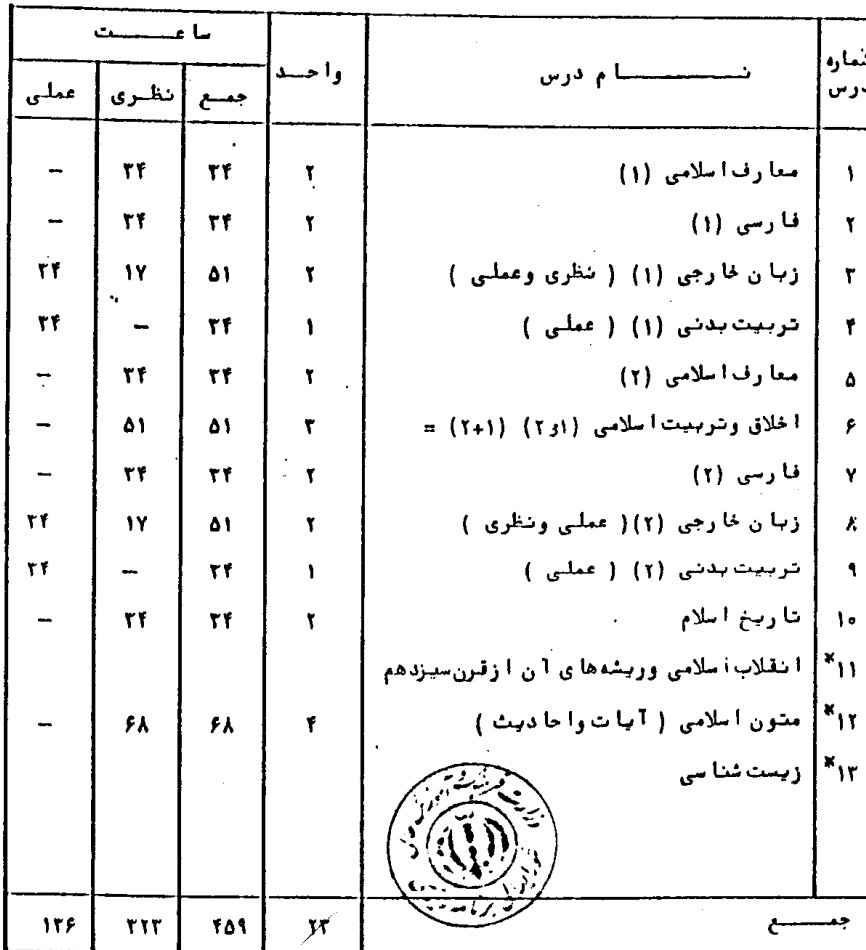 شماره درس | نام درس | واحد | ساعت
جمع | نظری | عملی
۱ | معارف اسلامی (۱) | ۲ | ۳۴ | ۳۴ | –
۲ | فارسی (۱) | ۲ | ۳۴ | ۳۴ | –
۳ | زبان خارجی (۱) ( نظری وعملی ) | ۲ | ۵۱ | ۱۷ | ۳۴
۴ | تربیت بدنی (۱) ( عملی ) | ۱ | ۳۴ | – | ۳۴
۵ | معارف اسلامی (۲) | ۲ | ۳۴ | ۳۴ | –
۶ | اخلاق وتربیت اسلامی (۱و۲) (۱+۲) = | ۳ | ۵۱ | ۵۱ | –
۷ | فارسی (۲) | ۲ | ۳۴ | ۳۴ | –
۸ | زبان خارجی (۲)( عملی ونظری ) | ۲ | ۵۱ | ۱۷ | ۳۴
۹ | تربیت بدنی (۲) ( عملی ) | ۱ | ۳۴ | – | ۳۴
۱۰ | تاریخ اسلام | ۲ | ۳۴ | ۳۴ | –
*۱۱ | انقلاب اسلامی وریشه‌های آن ازقرن سیزدهم
*۱۲ | متون اسلامی ( آیات واحادیث ) | ۴ | ۶۸ | ۶۸ | –
*۱۳ | زیست شناسی
جمع | ۲۳ | ۴۵۹ | ۳۲۳ | ۱۳۶